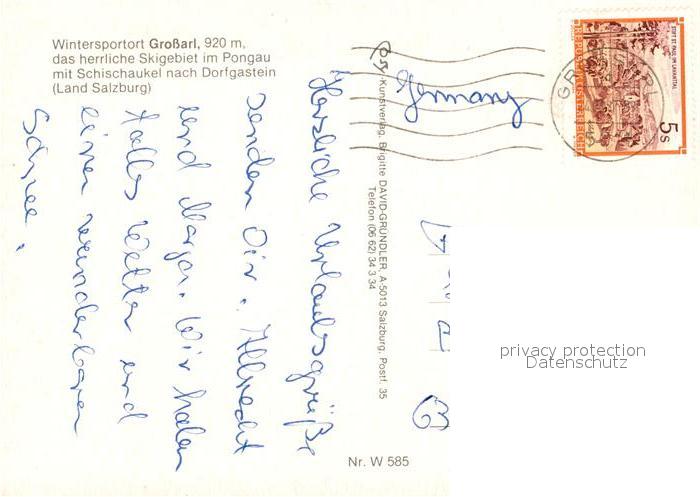 Wintersportort Großarl, 920 m,
das herrliche Skigebiet im Pongau
mit Schischaukel nach Dorfgastein
(Land Salzburg)
Herzliche Urlaubsgrüße
senden Dir, Albrecht
und Marga. Wir haben
tolles Wetter und
einen wunderbaren
Schnee.
Germany
-Kunstverlag, Brigitte DAVID-GRÜNDLER, A-5013 Salzburg, Postf. 35
Telefon (06 62) 34 3 34
Nr. W 585
STIFT ST. PAUL IM LAVANTTAL
REPUBLIK ÖSTERREICH
5 S
privacy protection
Datenschutz